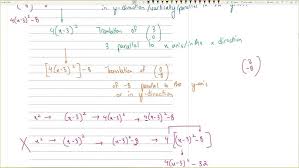 in y-direction/vertically/parallel to the
4(x-3)²-8
4(x-3)² Translation of (3 0)
3 parallel to x axis/in the x direction
[4(x-3)²]-8 Translation of (0 -8) (3 -8)
-8 parallel to the y-axis
or in y-direction
x² → (x-3)² → 4(x-3)² → 4(x-3)²-8
X x² → (x-3)² → (x-3)²-8 → 4[(x-3)²-8]
4(x-3)²-32